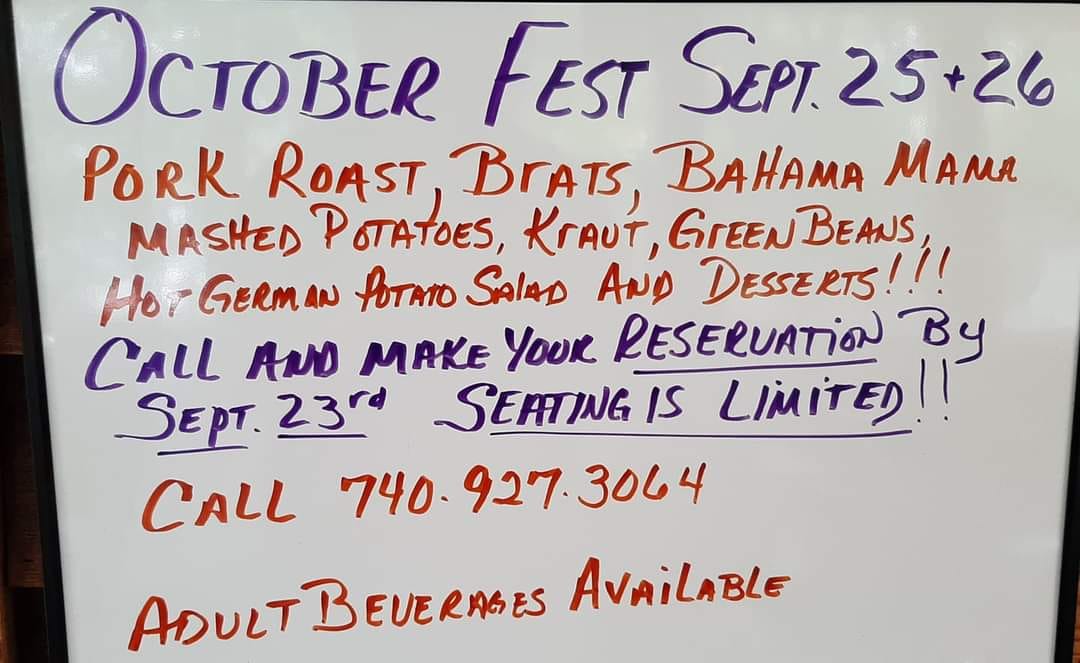 OCTOBER FEST SEPT. 25+26
PORK ROAST, BrATS, BAHAMA MAMA
MASHED POTATOES, KrAUT, GrEEN BEANS,
HOT GERMAN POTATO SALAD AND DESSERTS!!!
CALL AND MAKE YOUR RESERVATION By
SEPT. 23rd SEATING IS LIMITED!!
CALL 740.927.3064
ADULT BEVERAGES AVAILABLE